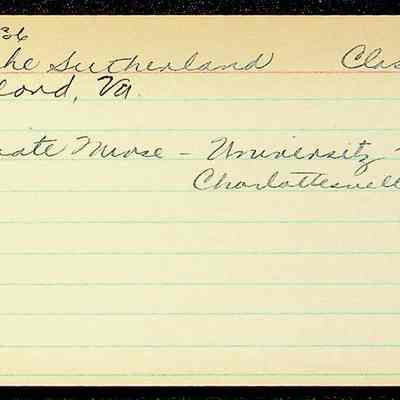 he Sutherland Clas
ord, Va.
ate Nurse - University
Charlottesvill